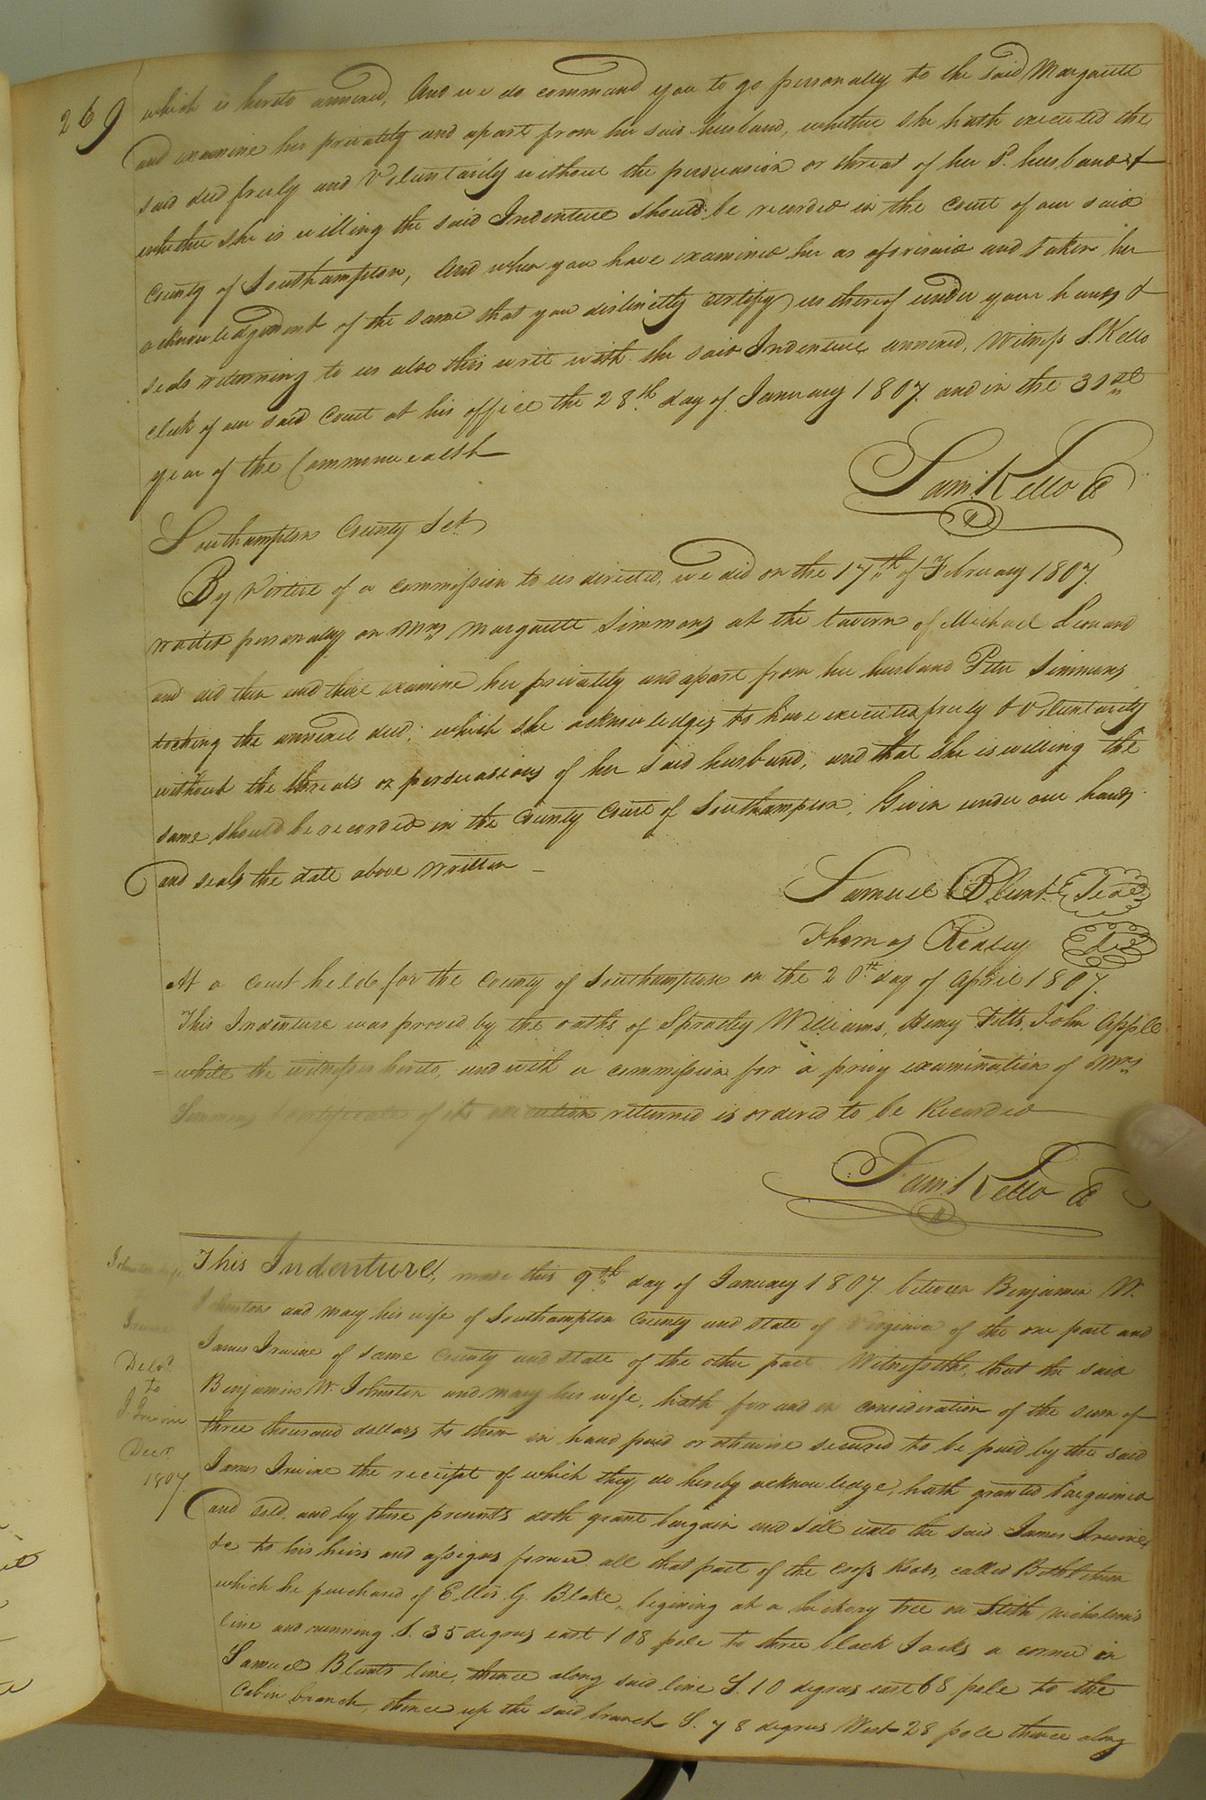 269
which is hereto annexed, And we do command you to go personally to the said Margarett
and examine her privately and apart from her said husband, whether she hath executed the
said deed freely and Voluntarily without the persuasion or threat of her S. husband &
whether she is willing the said Indenture should be recorded in the Court of our said
County of Southampton, And when you have examined her as aforesaid and taken her
acknowledgment of the same that you distinctly certify us thereof under your hands &
seals returning to us also this writ with the said Indenture annexed, Witness S. Kello
clerk of our said Court at his office the 28th day of January 1807 and in the 31st
year of the Commonwealth
Saml. Kello Cl
Southampton County Sct.
By Virtue of a commission to us directed, we did on the 17th of February 1807.
waited personally on Mrs Margarett Simmons at the tavern of Michael Leonard
and did then and there examine her privately and apart from her husband Peter Simmons
touching the annexed deed; which she acknowledges to have executed freely & voluntarily
without the threats or persuasions of her said husband, and that she is willing the
same should be recorded in the County Court of Southampton. Given under our hands
and seals the date above written -
Samuel Blunt Seal
Thomas Ridley
At a Court held for the County of Southampton on the 20th day of April 1807.
This Indenture was proved by the oaths of Spratley Williams, Henry Fitts, John Apple
= white the witnesses hereto, and with a commission for a privy examination of Mrs
Simmons & certificate of its execution returned is ordered to be Recorded
Saml. Kello Cl
This Indenture, made this 9th day of January 1807. between Benjamin W.
Johnston and Mary his wife of Southampton County and State of Virginia of the one part and
James Irvine of same County and State of the other part Witnesseth, that the said
Benjamin W. Johnston and Mary his wife, hath for and in consideration of the sum of
three thousand dollars to them in hand paid or otherwise secured to be paid by the said
James Irvine the receipt of which they do hereby acknowledge, hath granted bargained
and sold, and by these presents doth grant bargain and sell unto the said James Irvine
&c to his heirs and assigns forever all that part of the Cross Keys, called Bethlehem
which he purchased of Ellis G. Blake, begining at a hickory tree on Sith Nicholson's
line and running S. 35 degrees east 108 pole to three black Jacks a corner in
Samuel Blunts line, thence along said line S. 10 degrees east 68 pole to the
Cabin branch, thence up the said branch S. 78 degrees West 28 pole thence along
Irvine
Deld.
to
J Irvine
Decr.
1807.